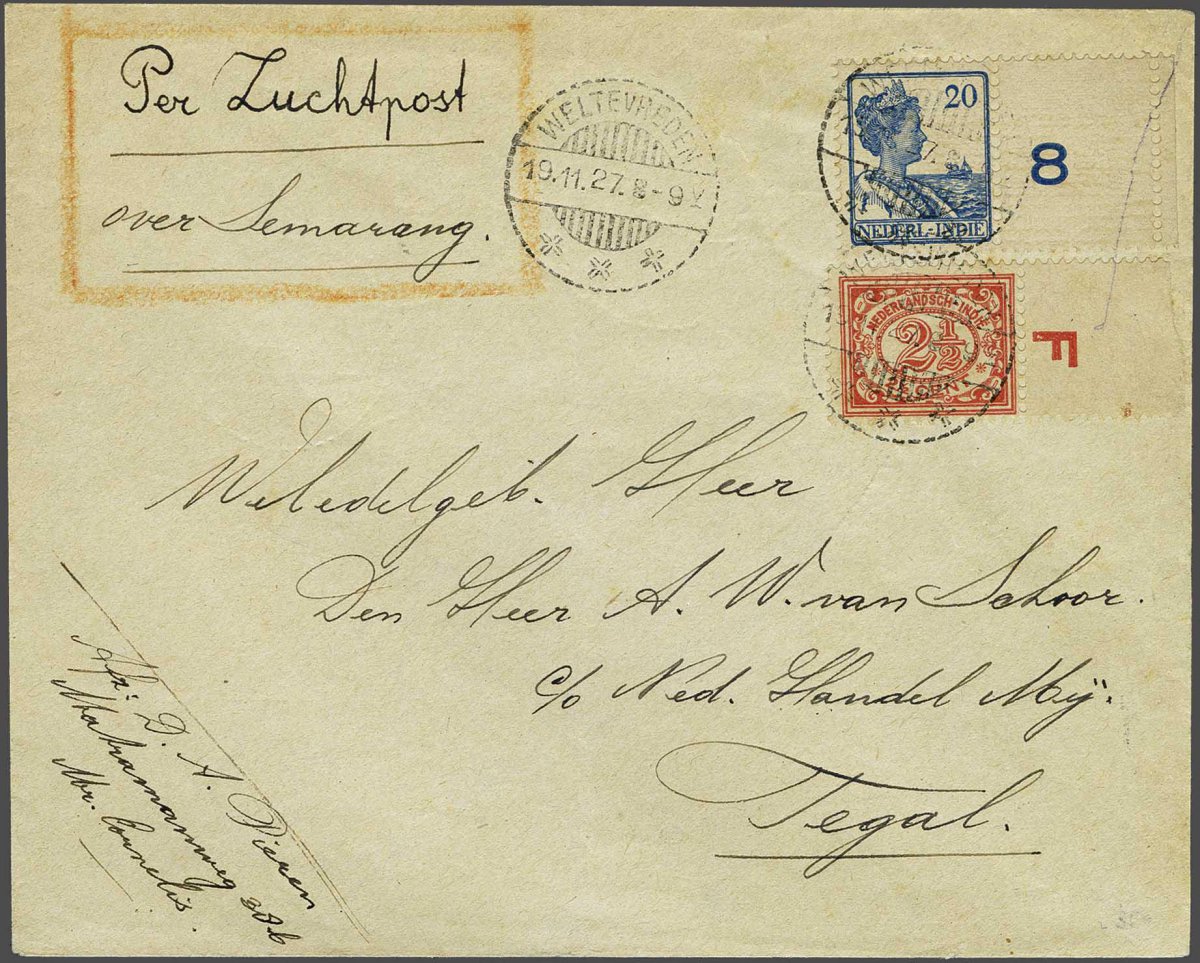 Per Luchtpost
over Semarang.
WELTEVREDEN
19.11.27.8-9V
20
NEDERL.-INDIE
8
NEDERLANDSCH-INDIE
2½
CENT
F
Weledelgeb. Heer
Den Heer A. W. van Schoor.
c/o Ned. Handel Mij.
Tegal.
Afz: D. A. Pieren
Matramanweg 30b
Mr. Cornelis.